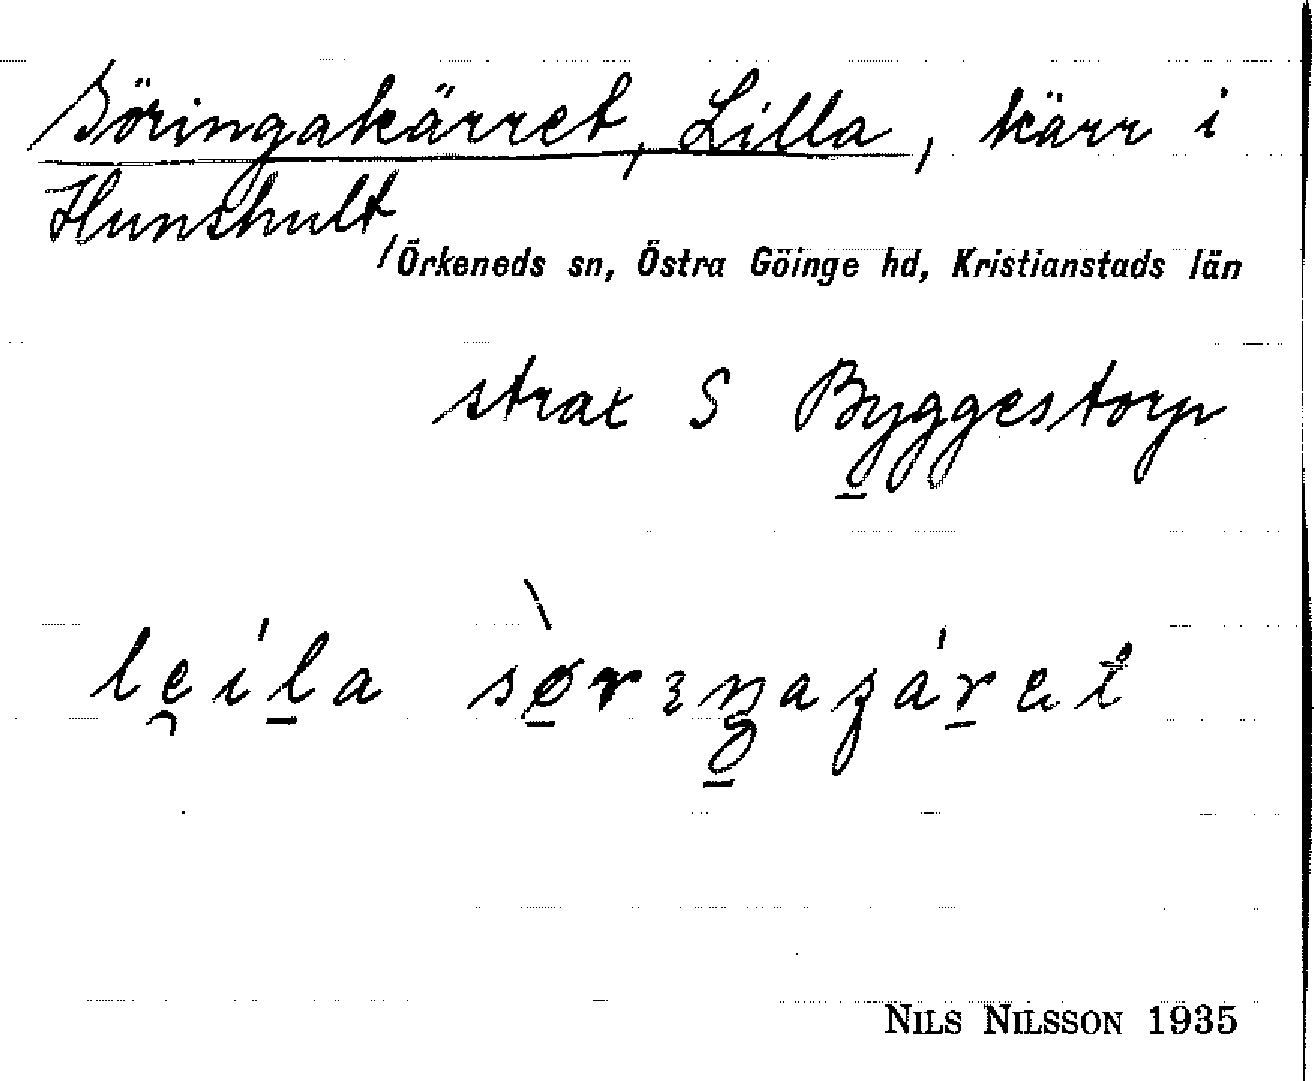 Söringakärret, Lilla, kärr i
Hunshult,
Örkeneds sn, Östra Göinge hd, Kristianstads län
strax S Byggestorp
NILS NILSSON 1935